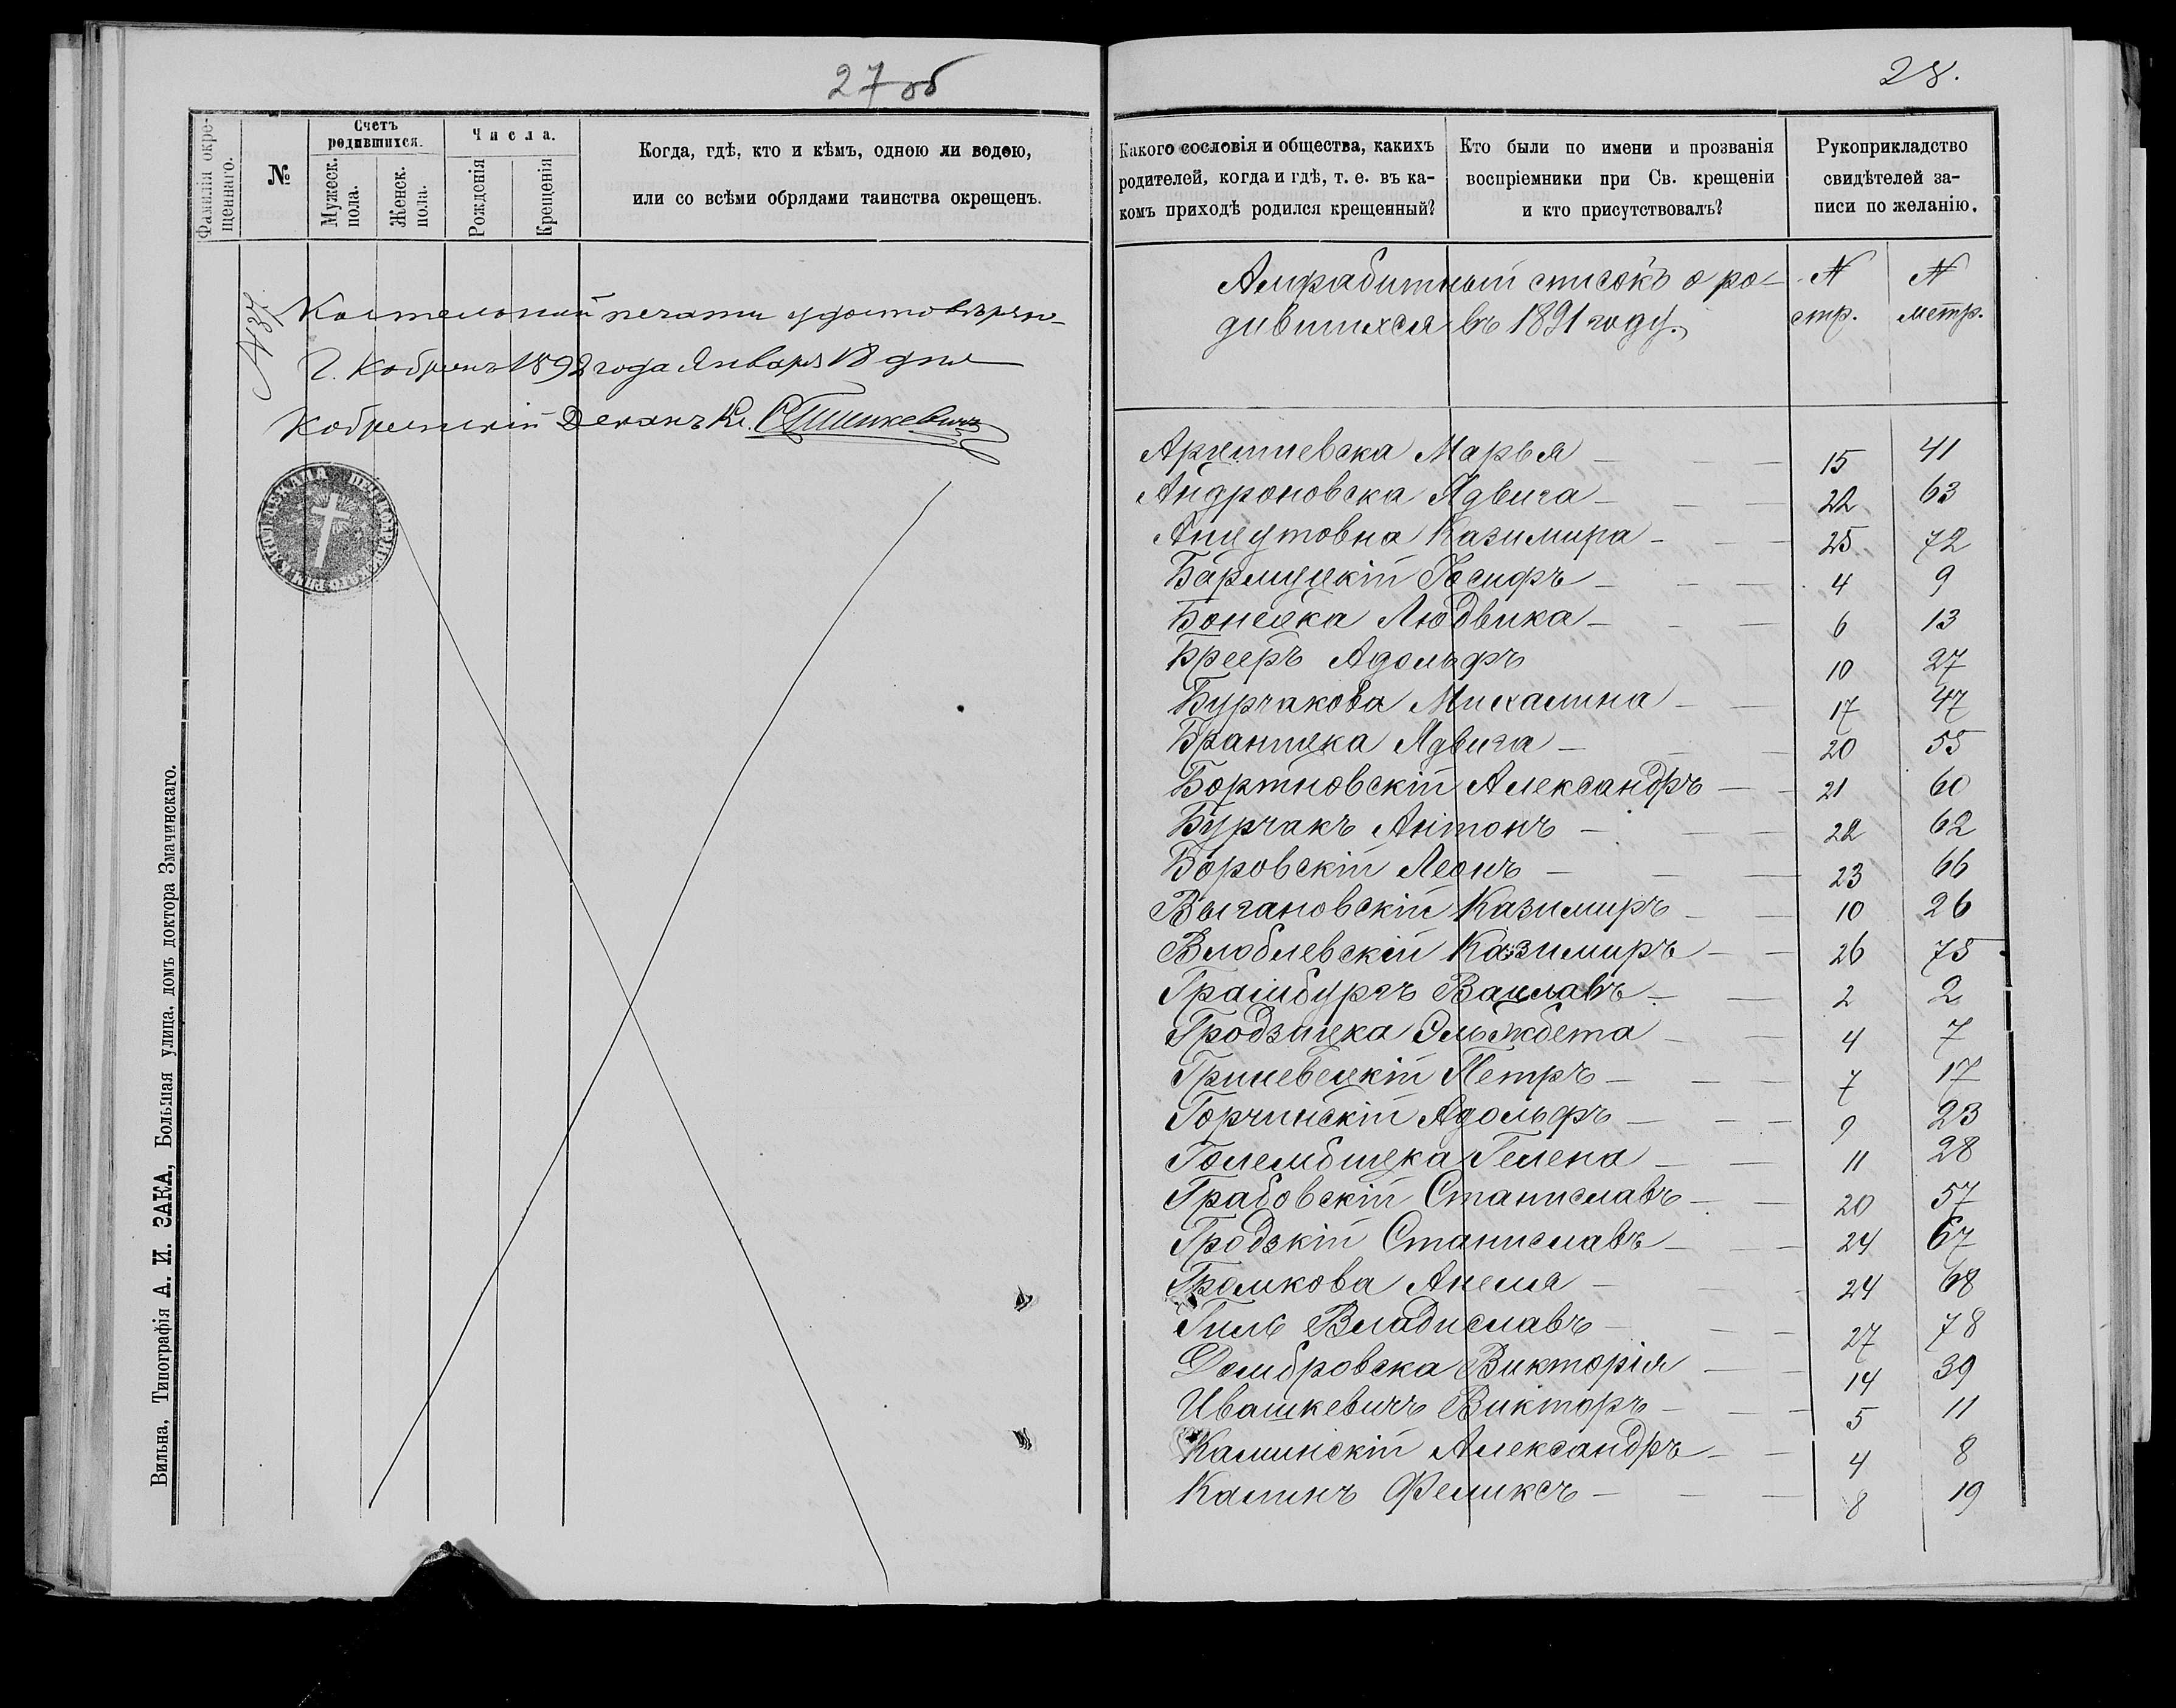 27 об
Фамилія окре-
щеннаго.
№
Счетъ
родившихся.
Мужеск.
пола.
Женск.
пола.
Числа.
Рожденія
Крещенія
Когда, гдѣ, кто и кѣмъ, одною ли водою,
или со всѣми обрядами таинства окрещенъ.
№ 37.
печати
Г. Кобринъ 1892 года Января 18 дня
Кобринскій Деканъ Кс.
Вильна, Типографія А. И. ЗАКА, Большая улица, домъ доктора Змачинскаго.
28.
Какого сословія и общества, какихъ
родителей, когда и гдѣ, т. е. въ ка-
комъ приходѣ родился крещенный?
Кто были по имени и прозванія
воспріемники при Св. крещеніи
и кто присутствовалъ?
Рукоприкладство
свидѣтелей за-
писи по желанію.
Алфабитный списокъ о ро- № №
дившихся въ 1891 году. стр. метр.
Марья 15 41
Андроновска Ядвига 22 63
Казимира 25 72
Іосифъ 4 9
Людвика 6 13
Брееръ Адольфъ 10 27
Бурчакова Михалина 17 47
Ядвига 20 55
Бортновскій Александръ 21 60
Бурчакъ Антонъ 22 62
Боровскій Леонъ 23 66
Выгановскій Казимиръ 10 26
Влоблевскій Казимиръ 26 75
Вацлавъ 2 2
Гродзицка Эльжбета 4 7
Гриневецкій Петръ 7 17
Горчинскій Адольфъ 9 23
Голембицка Гелена 11 28
Грабовскій Станиславъ 20 57
Гродзкій Станиславъ 24 67
Громкова Анеля 24 68
Гиль Владиславъ 27 78
Домбровска Викторія 14 39
Ивашкевичъ Викторъ 5 11
Каминскій Александръ 4 8
Калинъ Феликсъ 8 19